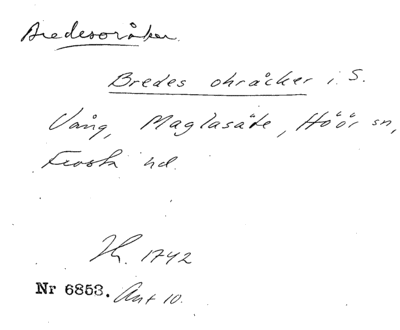 Bredesoråker.
Bredes ohråcker i S.
Vång, Maglasäte, Höör sn,
Frosta hd.
Hh. 1742
Nr 6853. Ant 10.